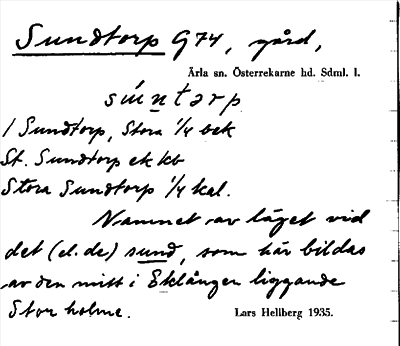 Sundtorp G74, gård,
Ärla sn. Österrekarne hd. Sdml. l.
súntɔrp
/ Sundtorp, Stora 1/4 bek
St. Sundtorp ek kb
Stora Sundtorp 1/4 kal.
Namnet av läget vid
det (el. de) sund, som här bildas
av den mitt i Eklången liggande
Storholme.
Lars Hellberg 1935.